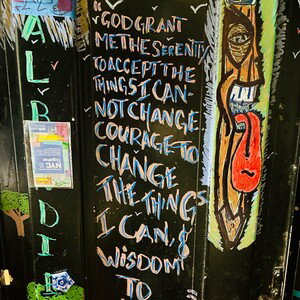 "GOD GRANT
ME THE SERENITY
TO ACCEPT THE
THINGS I CAN-
NOT CHANGE
COURAGE TO
CHANGE
THE THINGS
I CAN &
WISDOM
TO
ALB
DIE
NYC